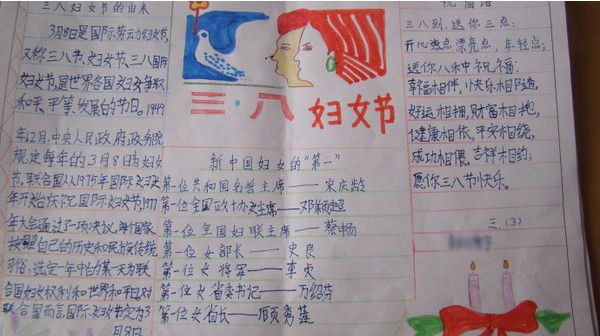 三八妇女节的由来
3月8日是国际劳动妇女节,
又称三八节,妇女节,三八国际
妇女节,是世界各国妇女争取
和平、平等、发展的节日。1949
年12月,中央人民政府政务院
规定每年的3月8日为妇女
节。联合国从1975年国际妇女
年开始庆祝国际妇女节,1977
年大会通过了一项决议,每个国家
按照自己的历史和民族传统
习俗,选定一年中的某一天为联
合国妇女权利和世界和平日,对
联合国而言,国际妇女节定为3
月8日
三·八
妇女节
新中国妇女的"第一"
第一位共和国名誉主席——宋庆龄
第一位全国政协女主席——邓颖超
第一位全国妇联主席——蔡畅
第一位女部长——史良
第一位女将军——李贞
第一位女省委书记——万绍芬
第一位女省长——顾秀莲
祝福语
三八到,送你三点:
开心点漂亮点,年轻点;
送你八种祝福:
幸福相伴,快乐相随,
好运相拥,财富相抱,
健康相依,平安相绕,
成功相偎,吉祥相约;
愿你三八节快乐。
三.(3)